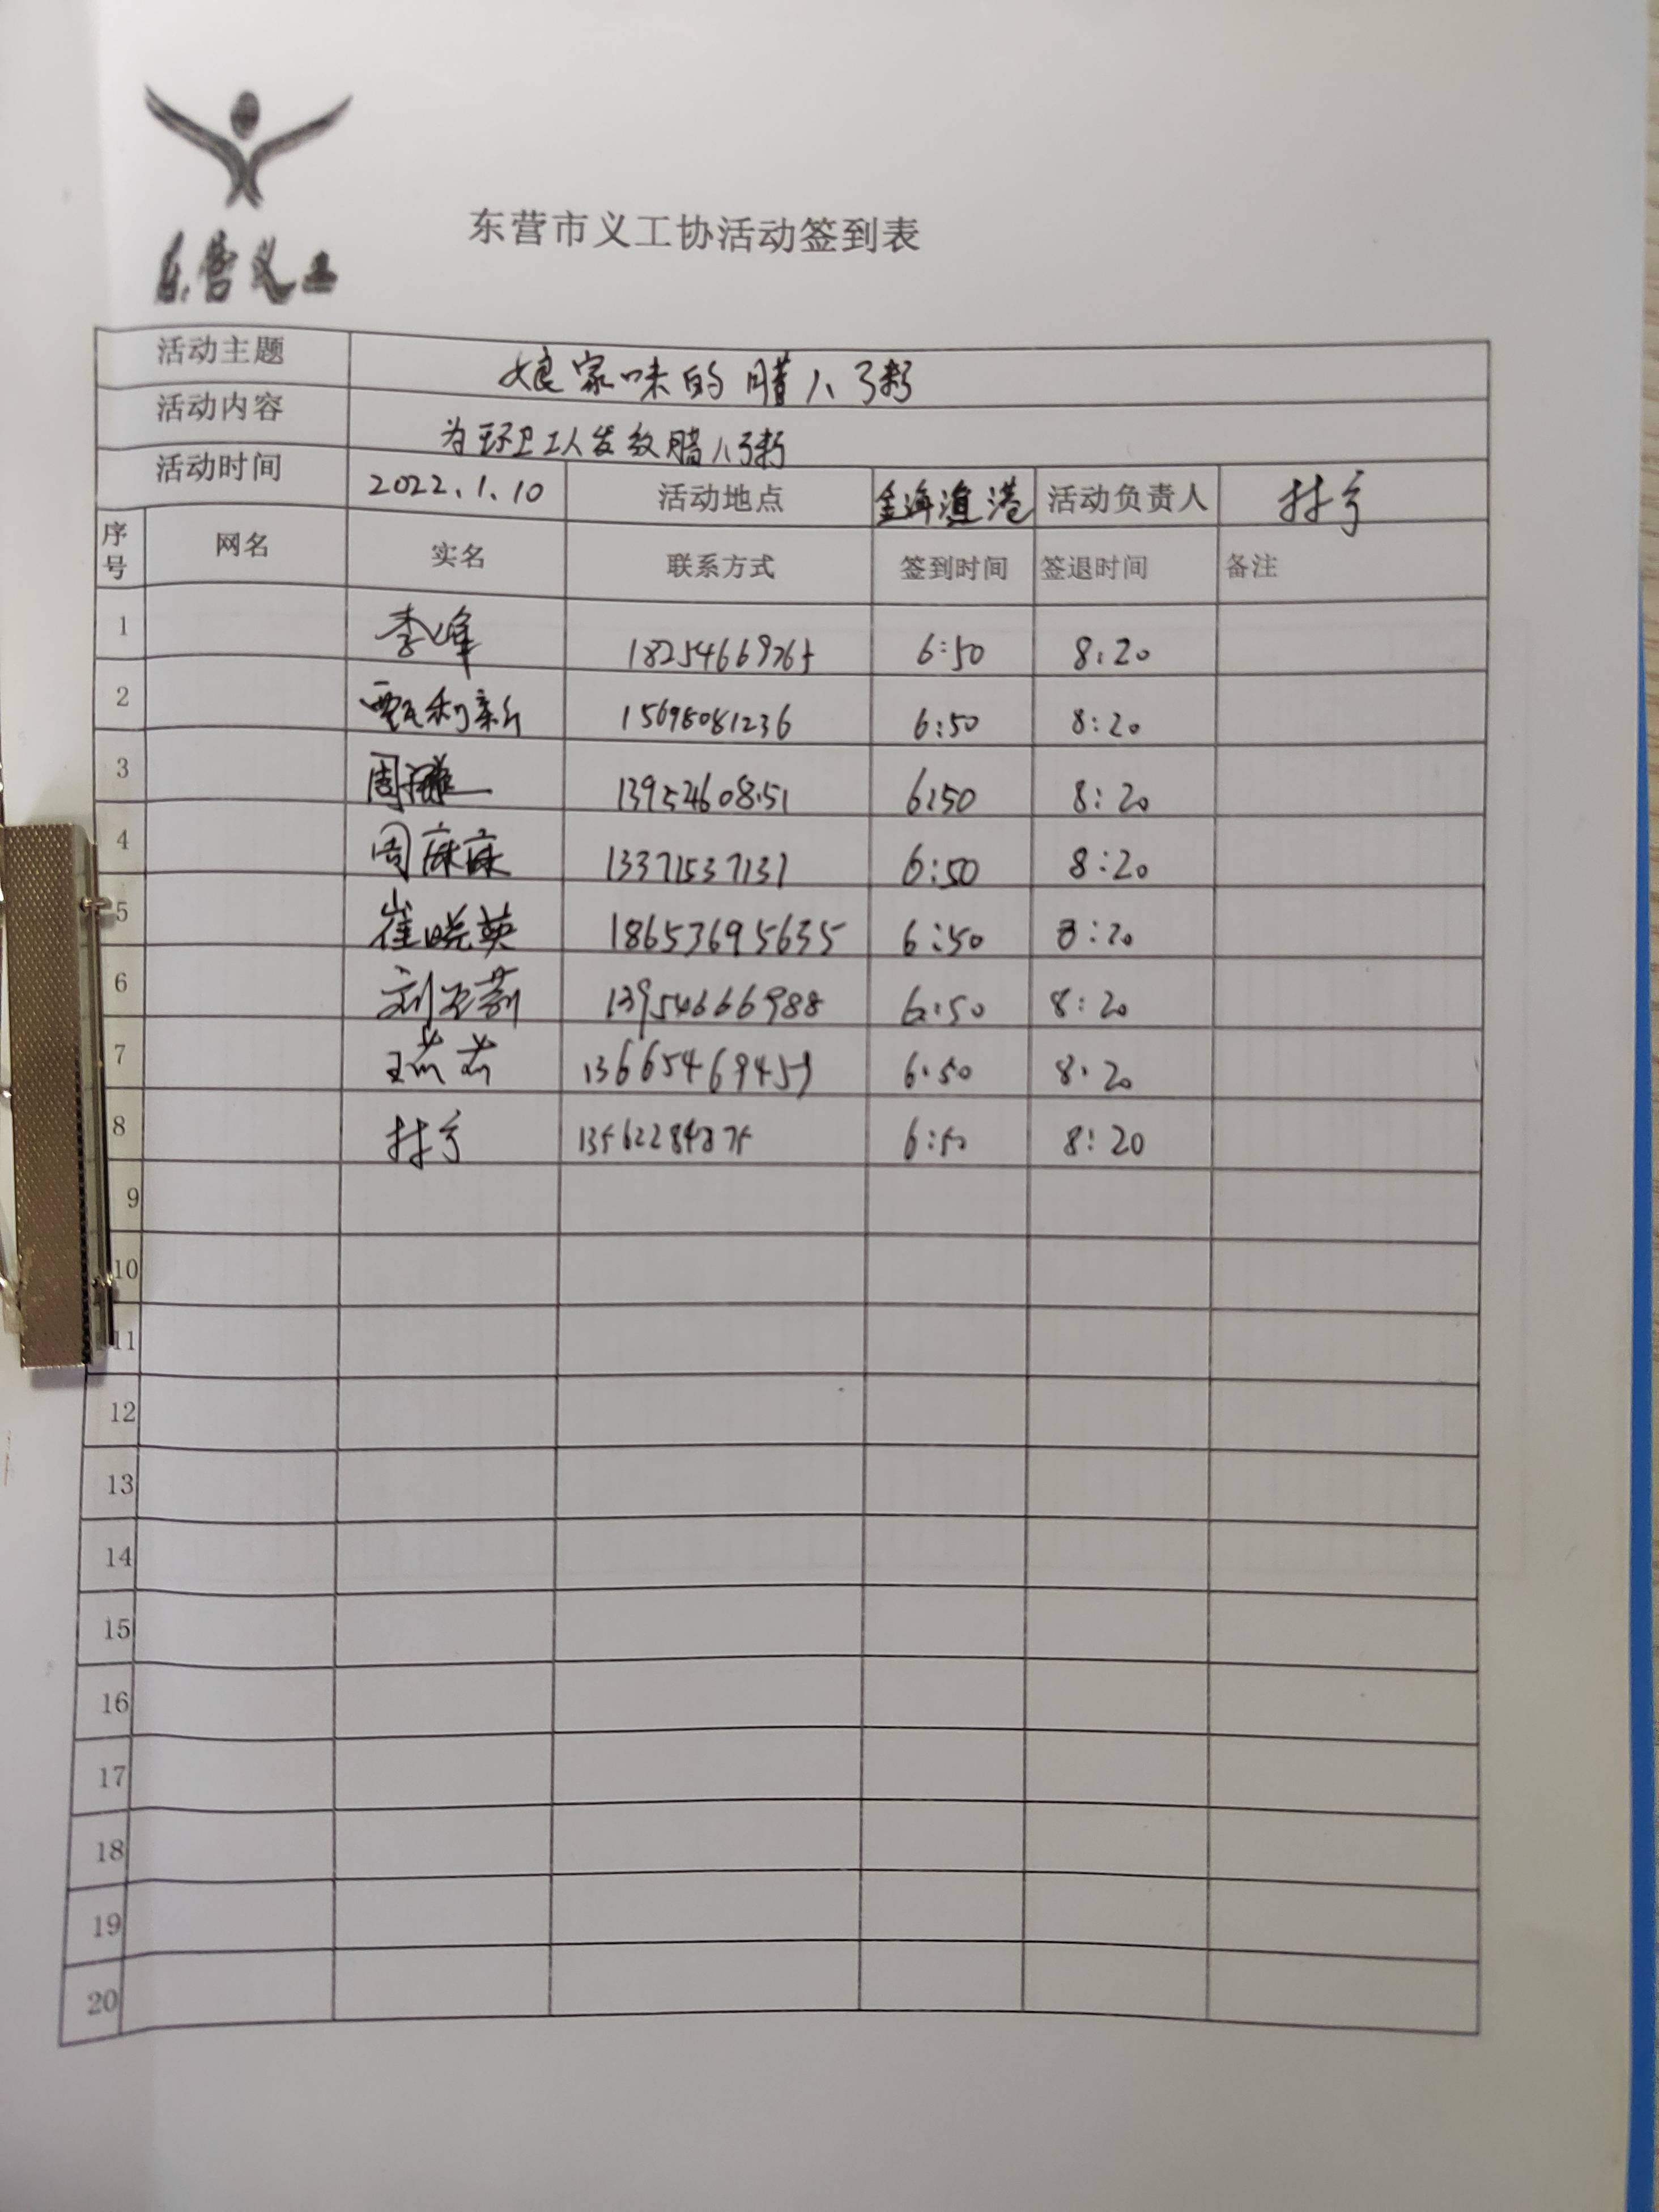 东营义工
东营市义工协活动签到表
活动主题 娘家味的腊八粥
活动内容 为环卫工人发放腊八粥
活动时间 2022.1.10 活动地点 金海渔港 活动负责人
序号 网名 实名 联系方式 签到时间 签退时间 备注
1 李峰 18254669765 6:50 8:20
2 甄利新 15698081236 6:50 8:20
3 周 6:50 8:20
4 周麻麻 13371537137 6:50 8:20
5 崔晓英 18653695635 6:50 8:20
6 刘玉莉 13954666988 6:50 8:20
7 13665469459 6:50 8:20
8 13562284875 6:50 8:20
9
10
11
12
13
14
15
16
17
18
19
20